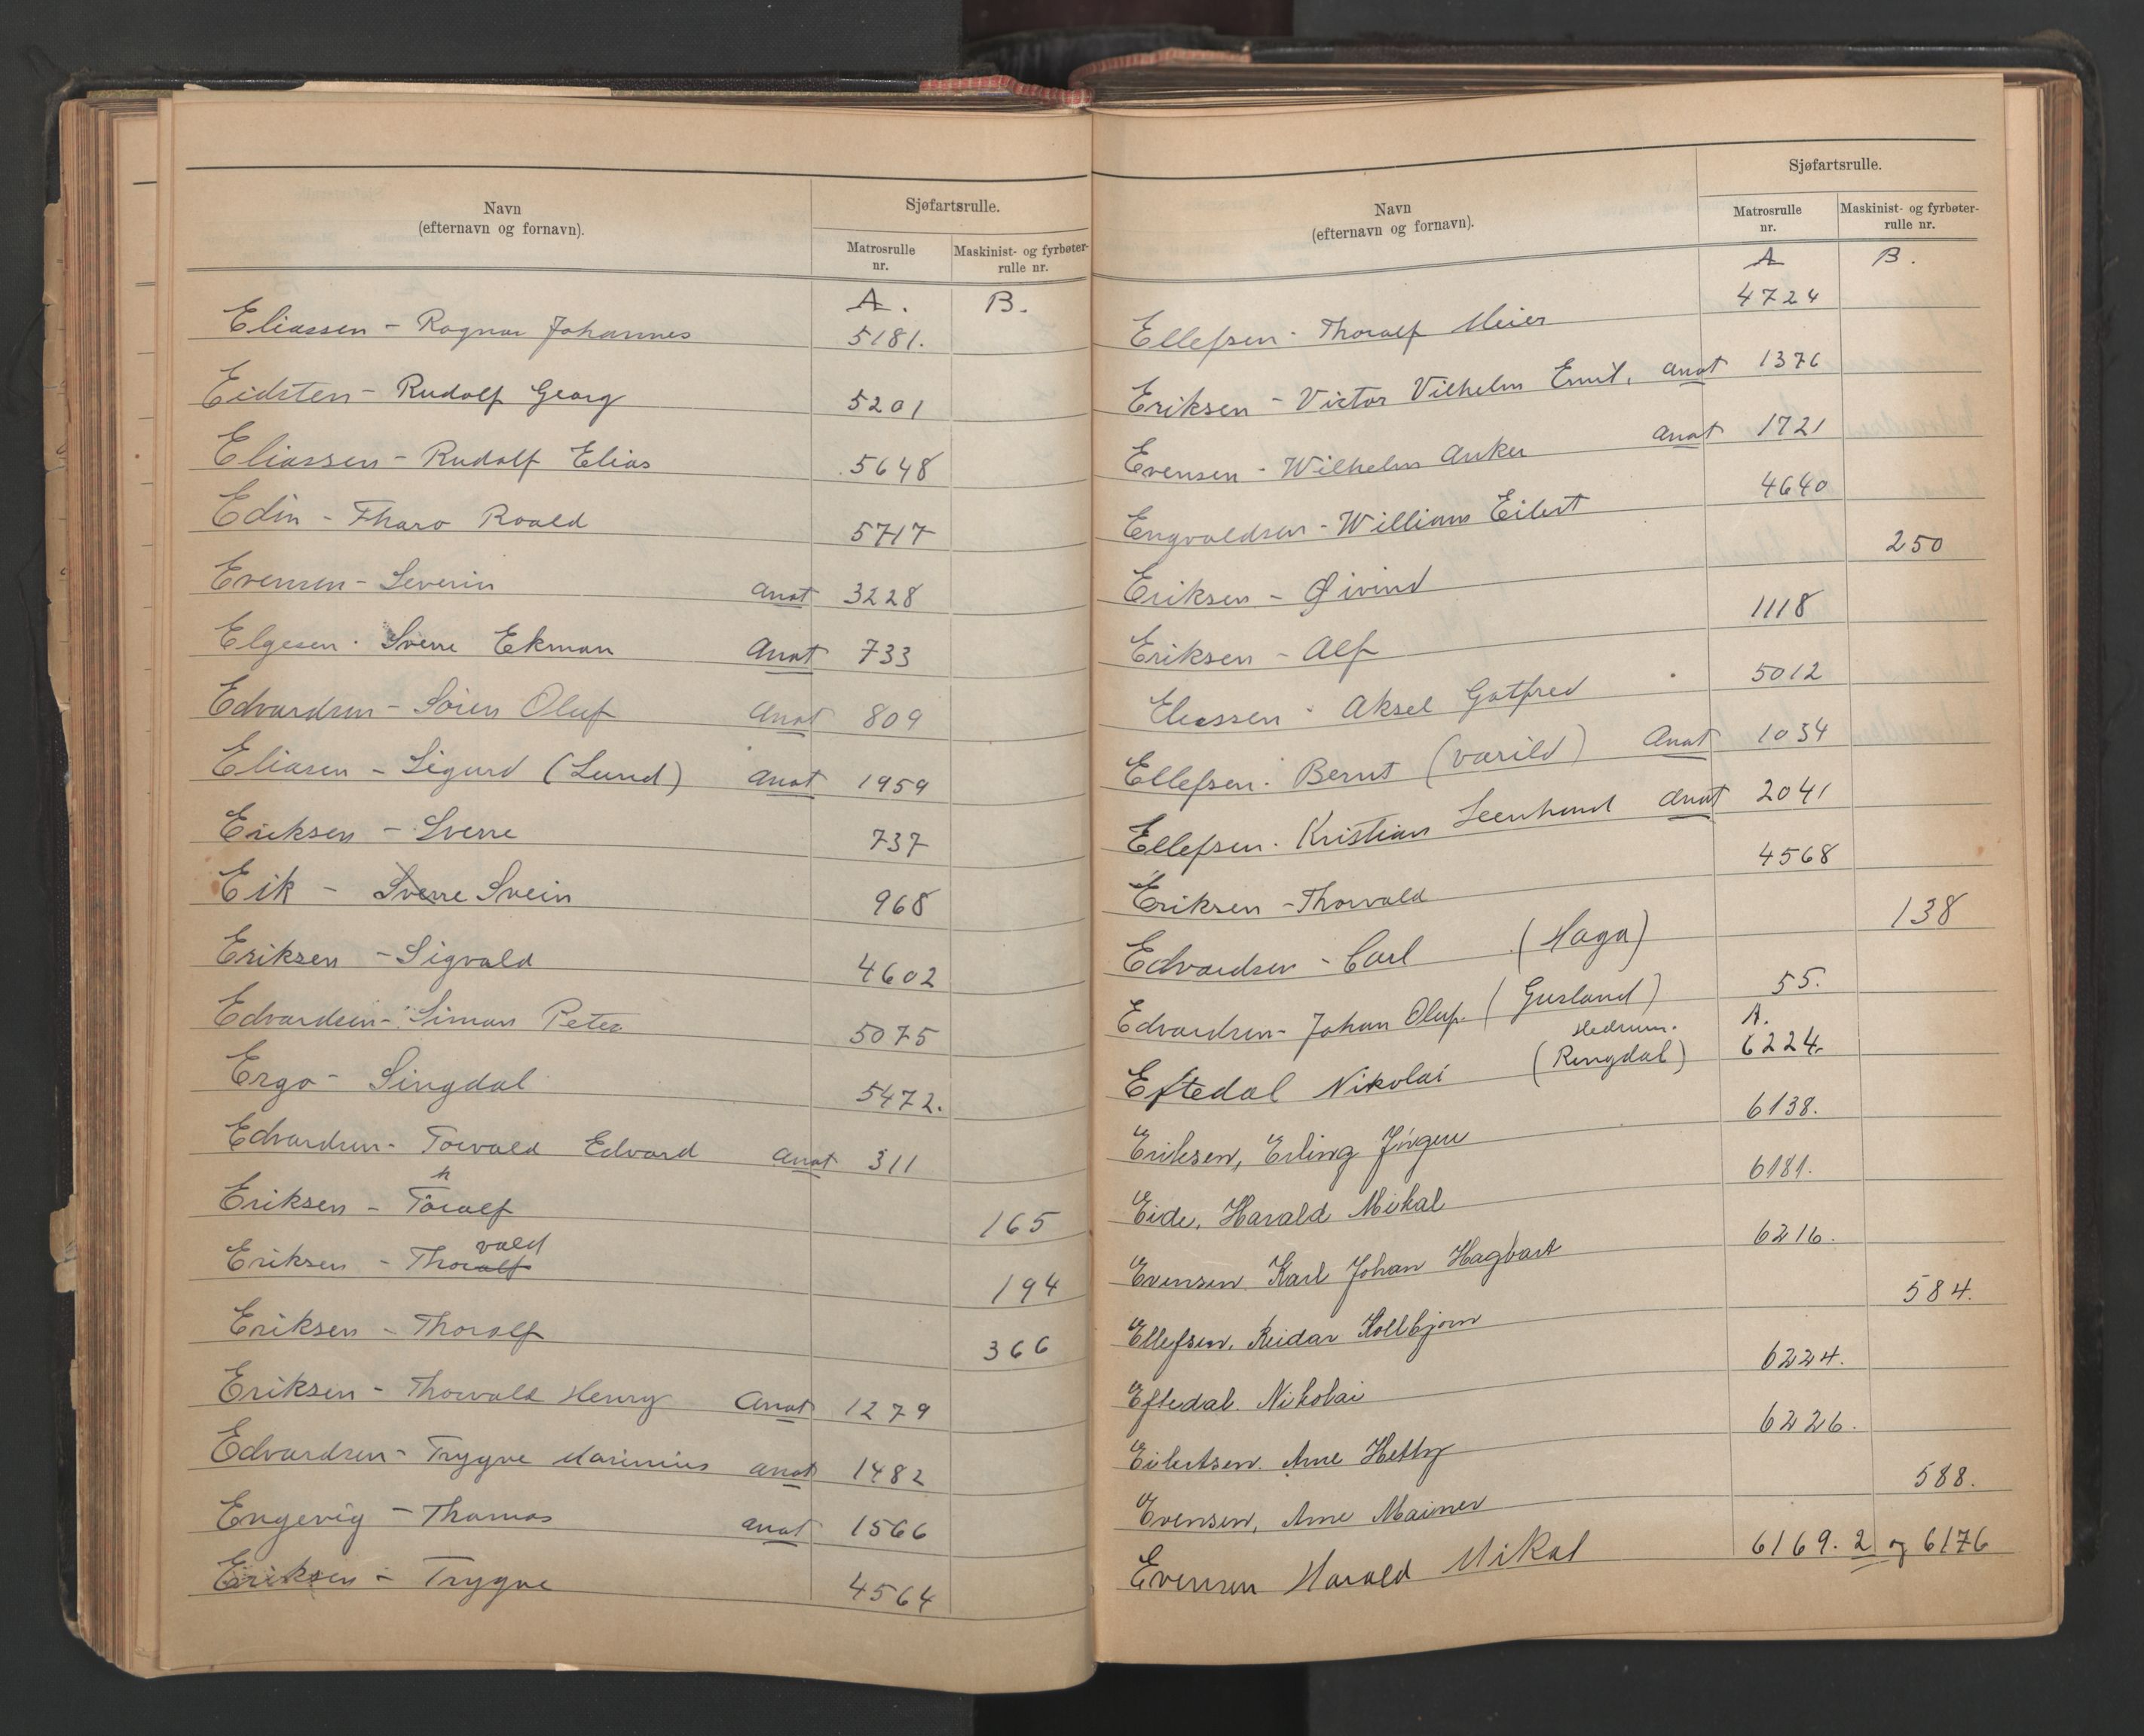 Navn
(efternavn og fornavn).
Sjøfartsrulle.
Matrosrulle
nr.
Maskinist- og fyrbøter-
rulle nr.
A. B.
Eliassen - Ragnar Johannes 5181.
Eidsten - Rudolf Georg 5201
Eliassen - Rudolf Elias 5648
Edin - Tharo Roald 5717
Evensen - Severin anot 3228
Elgesen - Sverre Ekman Anot 733
Edvardsen - Sören Oluf Anot 809
Eliasen - Sigurd (Lund) anot 1959
Eriksen - Sverre 737
Eik - Sverre Svein 968
Eriksen - Sigvald 4602
Edvardsen - Simon Peter 5075
Ergo - Singdal 5472.
Edvardsen - Torvald Edvard anot 311
h
Eriksen - Toralf 165
vald
Eriksen - Thoralf 194
Eriksen - Thoralf 366
Eriksen - Thorvald Henry Anot 1279
Edvardsen - Trygve Marinius anot 1482
Engevig - Thomas anot 1566
Eriksen - Trygve 4564
Navn
(efternavn og fornavn).
Sjøfartsrulle.
Matrosrulle
nr.
Maskinist- og fyrbøter-
rulle nr.
A B.
Ellefsen - Thoralf Meier 4724
Eriksen - Victor Vilhelm Emil. anot 1376
Evensen - Wilhelm Anker anot 1721
Engvaldsen - William Eilert 4640
Eriksen - Øivind 250
Eriksen - Alf 1118
Eliassen - Aksel Gotfred 5012
Ellefsen - Bernt (Varild) Anot 1034
Ellefsen - Kristian Leenhard Anot 2041
Eriksen - Thorvald 4568
Edvardsen - Carl (Haga) 138
Edvardsen - Johan Oluf. (Gusland) 55.
Hedrum. A.
Eftedal Nikolai (Ringdal) 6224.
Eriksen, Erling Jörgen 6138.
Eide, Harald Mikal 6181.
Evensen Karl Johan Hagbart 6216.
Ellefsen, Reidar Kollbjørn 584.
Eftedal. Nikolai 6224.
Eilertsen. Arne Hetby 6226.
Evensen, Arne Mainer 588.
Evensen Harald Mikal 6169.2 og 6176